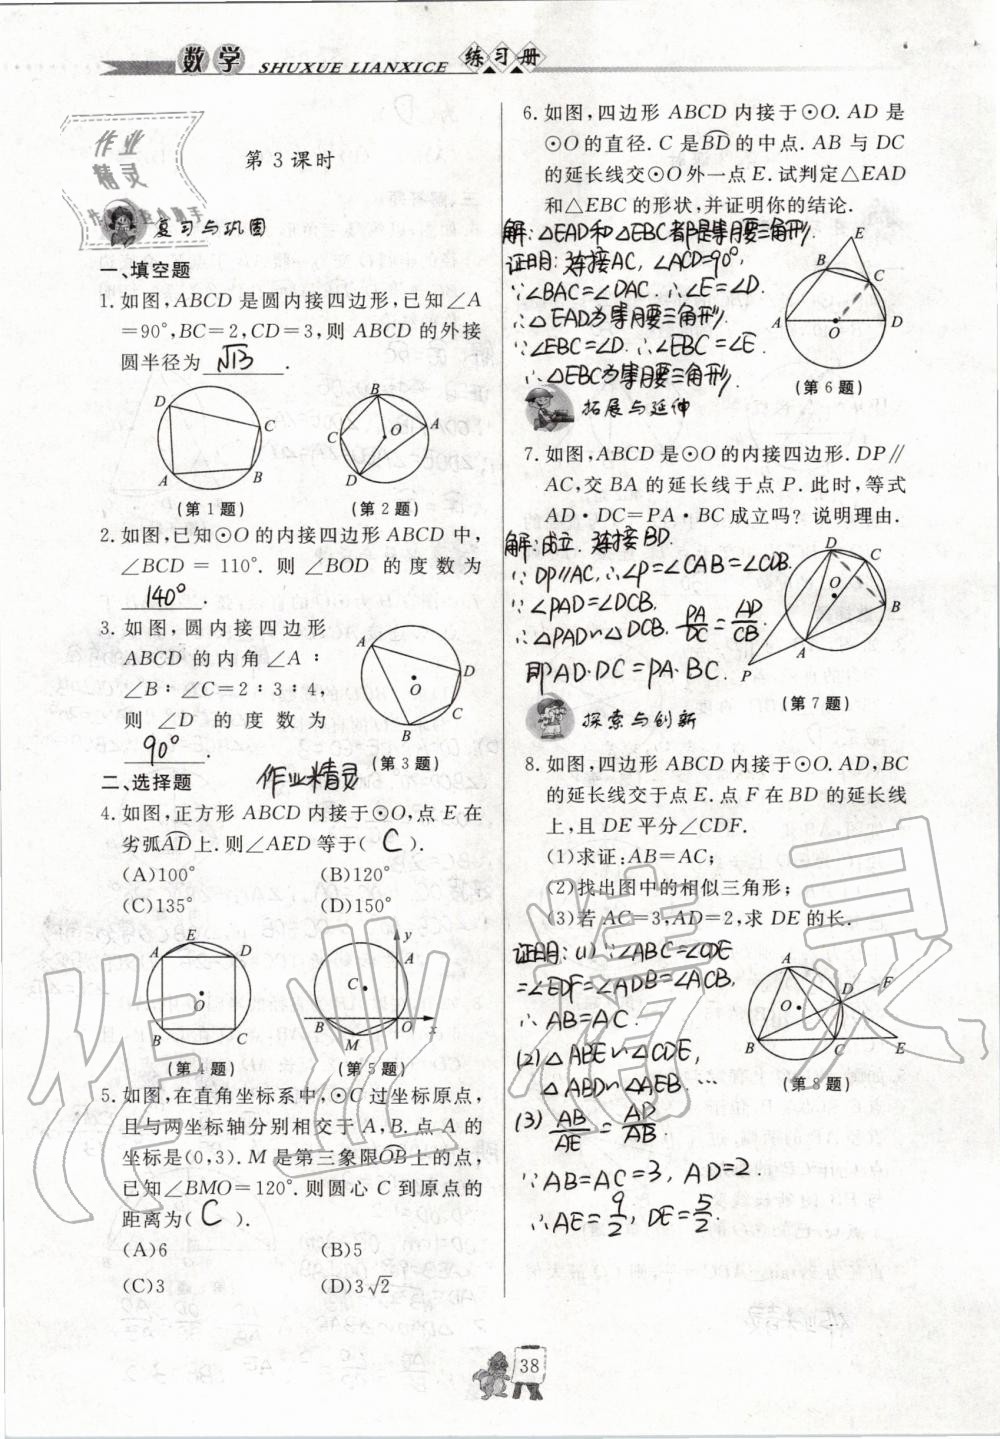 数学 SHUXUE LIANXICE 练习册
作业
精灵
第3课时
复习与巩固
一、填空题
1. 如图,ABCD 是圆内接四边形,已知∠A
=90°,BC=2,CD=3,则 ABCD 的外接
圆半径为 √13 .
D
C
A
B
(第1题)
B
A
C
O
D
(第2题)
2. 如图,已知⊙O的内接四边形 ABCD 中,
∠BCD = 110°. 则 ∠BOD 的度数为
140° .
3. 如图,圆内接四边形
ABCD 的内角∠A∶
∠B∶∠C=2∶3∶4,
则 ∠D 的度数为
90° .
A
D
O
C
B
(第3题)
二、选择题
作业精灵
4. 如图,正方形 ABCD 内接于⊙O,点 E 在
劣弧AD上.则∠AED等于( C ).
(A)100° (B)120°
(C)135° (D)150°
E
A
D
O
B
C
(第4题)
y
A
C
B
O
x
M
(第5题)
5. 如图,在直角坐标系中,⊙C 过坐标原点,
且与两坐标轴分别相交于 A,B. 点 A 的
坐标是(0,3). M 是第三象限OB上的点,
已知∠BMO=120°. 则圆心 C 到原点的
距离为( C ).
(A)6 (B)5
(C)3 (D)3√2
6. 如图,四边形 ABCD 内接于⊙O. AD 是
⊙O的直径. C 是BD的中点. AB 与 DC
的延长线交⊙O外一点 E. 试判定△EAD
和△EBC 的形状,并证明你的结论.
解:△EAD和△EBC都是等腰三角形.
证明:连接AC, ∠ACD=90°,
∵∠BAC=∠DAC. ∴∠E=∠D.
∴△EAD为等腰三角形.
∵∠EBC=∠D. ∴∠EBC=∠E.
∴△EBC为等腰三角形.
E
B
C
A
O
D
(第6题)
拓展与延伸
7. 如图,ABCD 是⊙O的内接四边形. DP∥
AC,交 BA 的延长线于点 P. 此时,等式
AD·DC=PA·BC成立吗?说明理由.
解:成立. 连接BD.
∵DP∥AC,∴∠P=∠CAB=∠CDB.
∵∠PAD=∠DCB.
∴△PAD∽△DCB. PA/DC=AD/CB.
即AD·DC=PA·BC.
D
C
O
B
A
P
(第7题)
探索与创新
8. 如图,四边形 ABCD 内接于⊙O. AD,BC
的延长线交于点 E. 点 F 在 BD 的延长线
上,且 DE 平分∠CDF.
(1)求证:AB=AC;
(2)找出图中的相似三角形;
(3)若 AC=3,AD=2,求 DE 的长.
证明:(1)∵∠ABC=∠CDE
=∠EDF=∠ADB=∠ACB,
∴AB=AC.
(2)△ABE∽△CDE,
△ABD∽△AEB. …
(3) AB/AE=AD/AB
∵AB=AC=3, AD=2.
∴AE=9/2, DE=5/2.
A
F
D
O
B
C
E
(第8题)
作业精灵
38